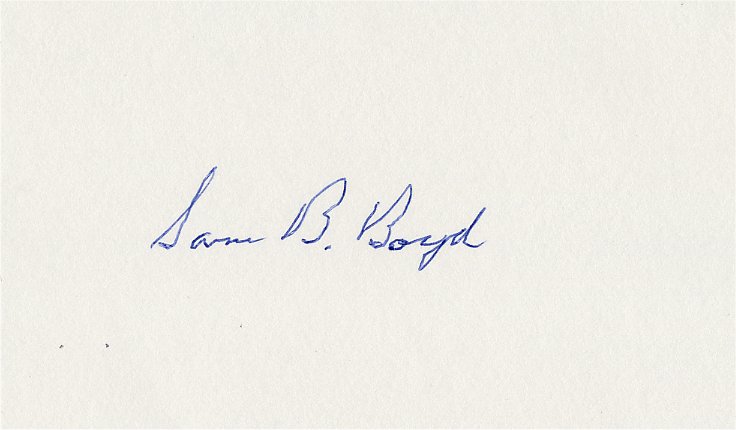 Sam B. Boyd